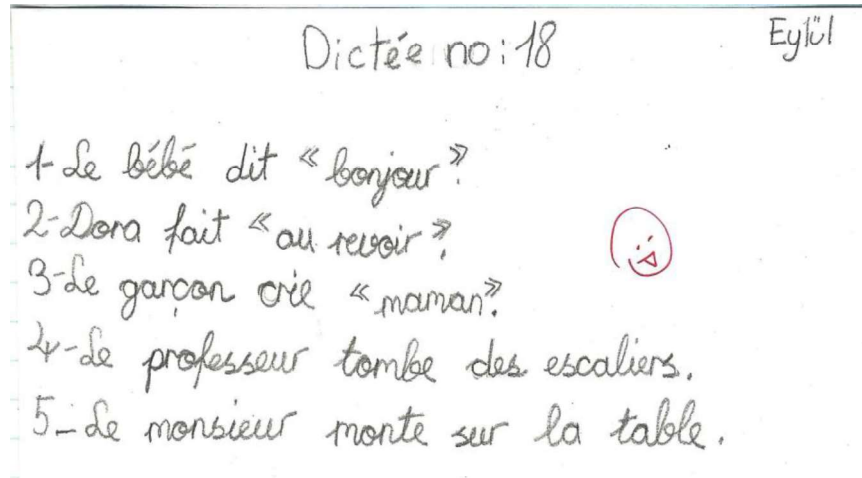 Dictée no: 18
Eylül
1- Le bébé dit « bonjour ».
2- Dora fait « au revoir ».
3- Le garçon crie « maman ».
4- Le professeur tombe des escaliers.
5- Le monsieur monte sur la table.